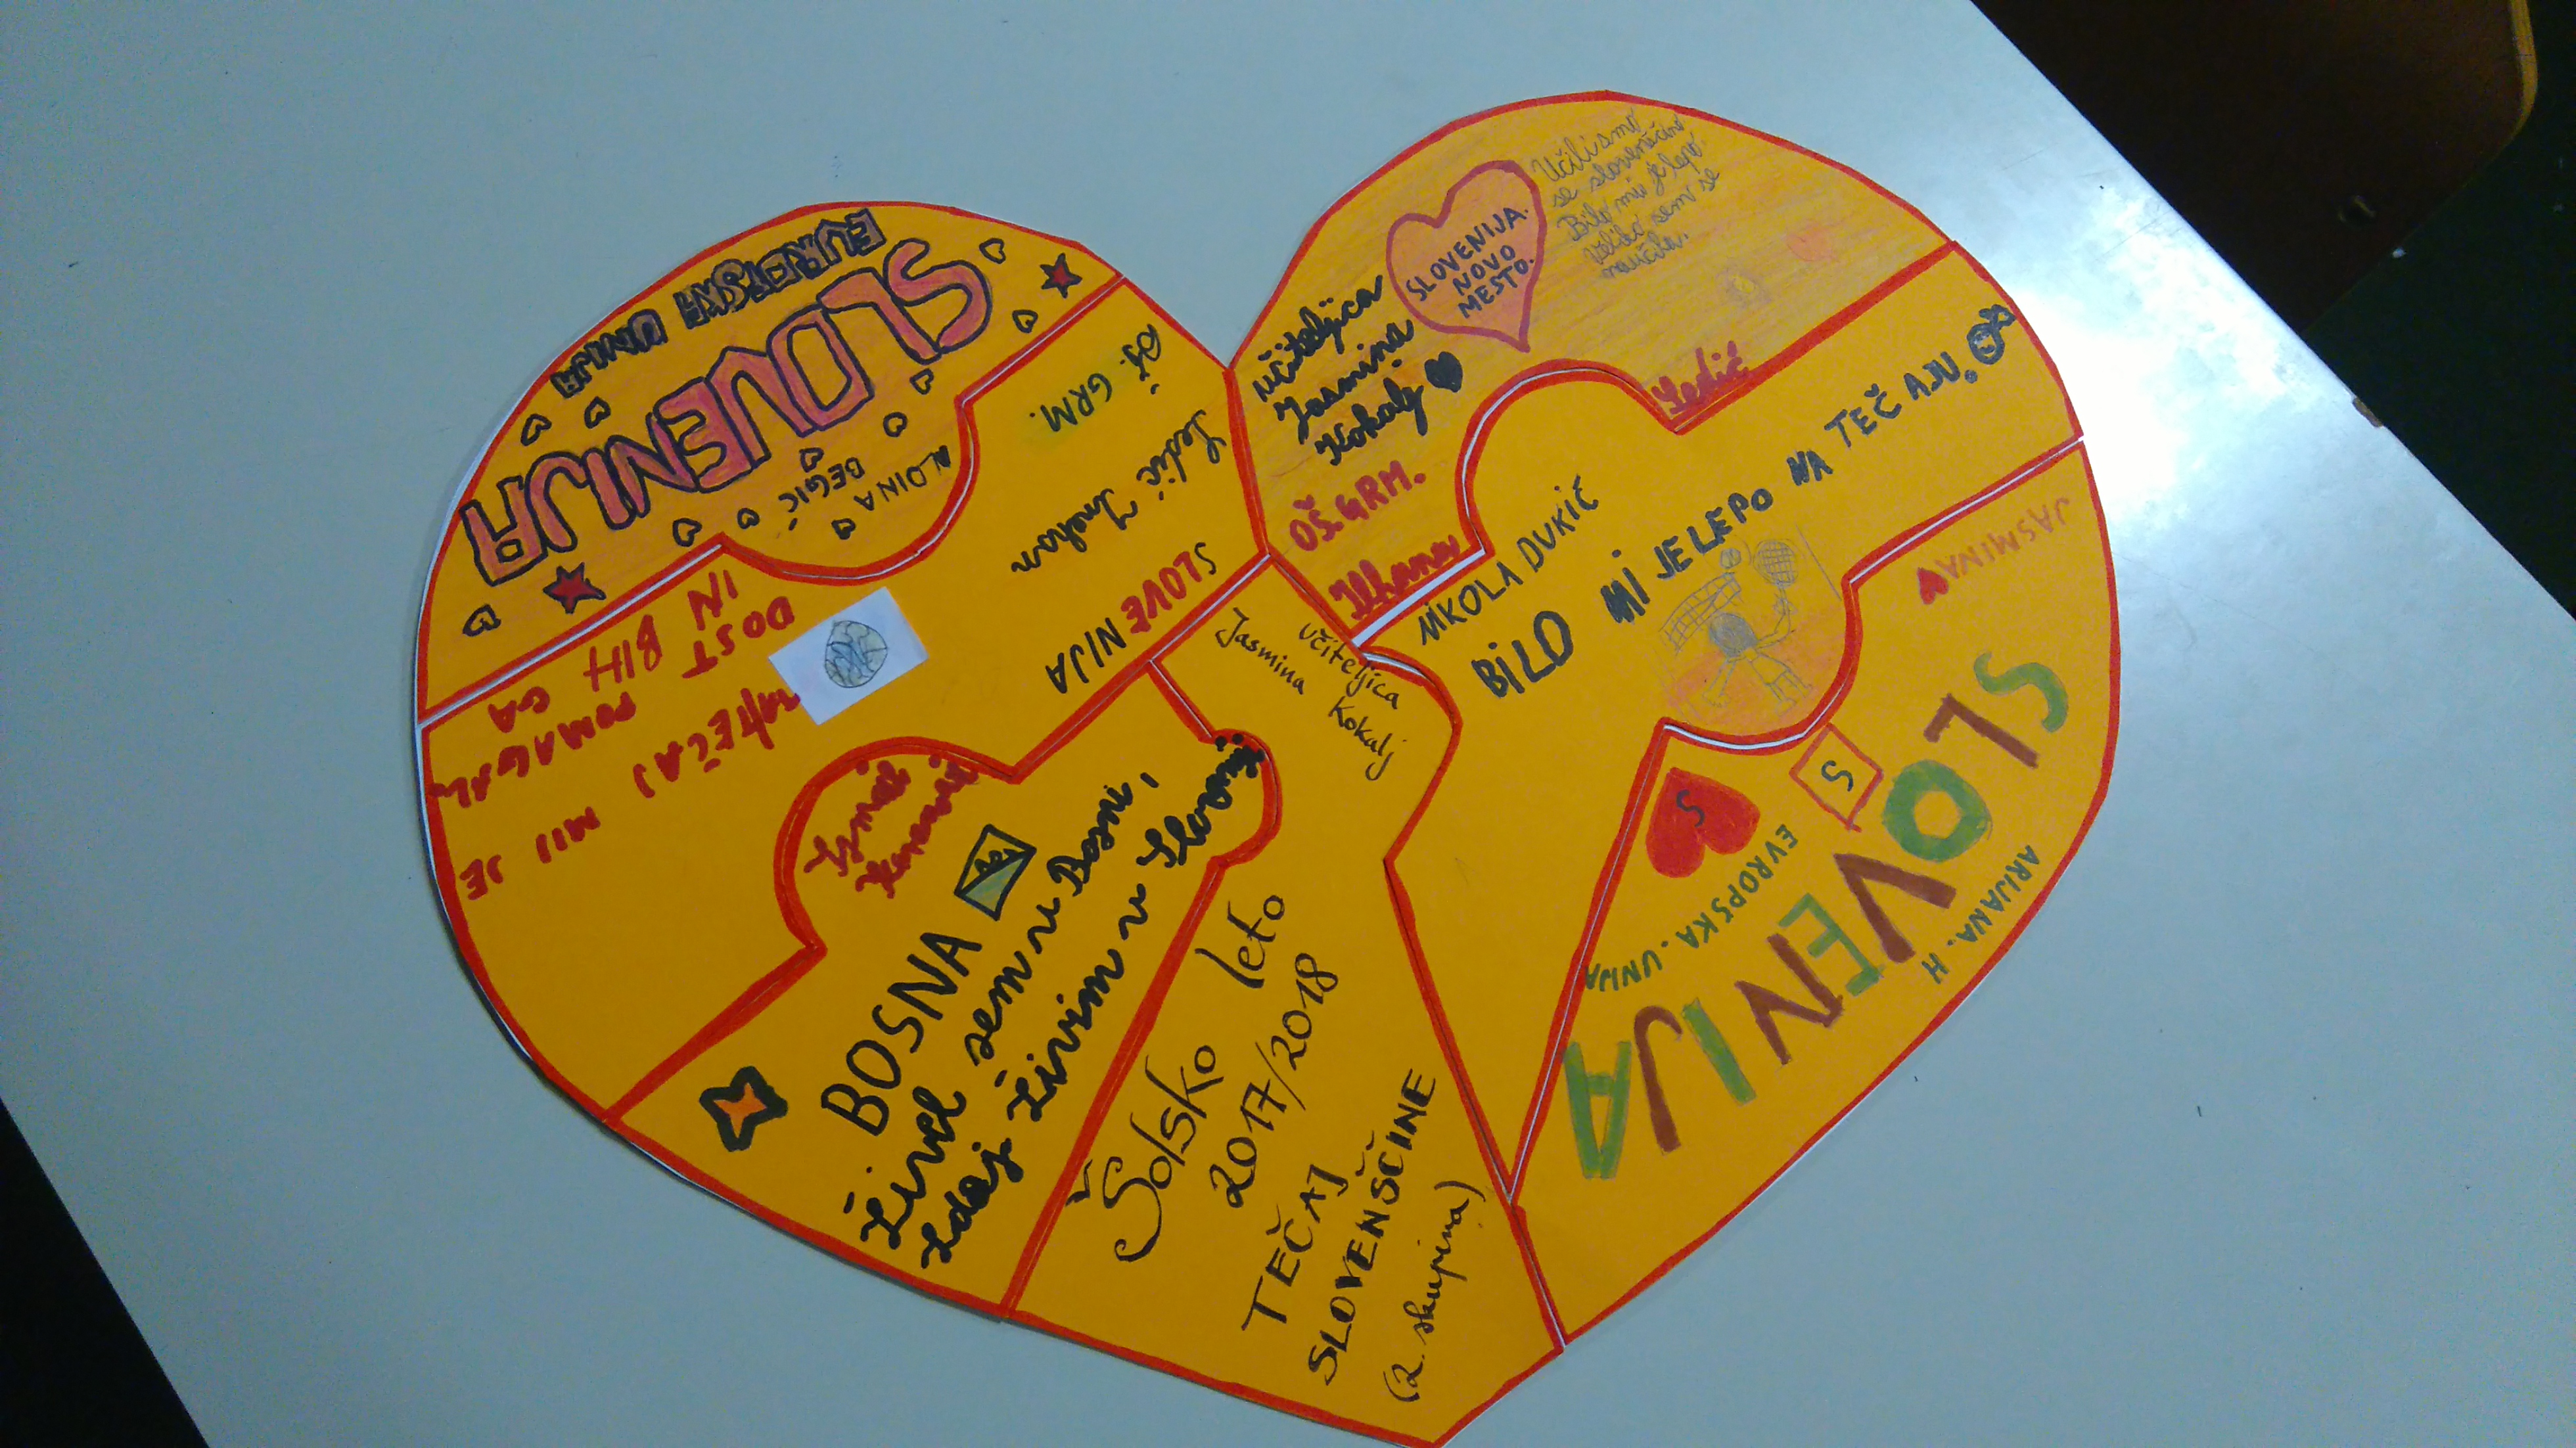 EVROPSKA UNIJA
SLOVENIJA
ALDINA
BEGIĆ
OŠ. GRM.
Ledić Irnehan
SLOVENIJA
TEČAJ MI JE
DOST POMAGAL
IN BIH GA
BOSNA
Živel sem v Bosni,
zdaj živim v Sloveniji
učiteljica
Jasmina Kokalj
Šolsko leto
2017/2018
TEČAJ
SLOVENŠČINE
(2. skupina)
SLOVENIJA.
NOVO
MESTO.
Učili smo
se slovenščino
Bilo mi je lepo.
Veliko sem se
naučila.
učiteljica
Jasmina
Kokalj
OŠ.GRM.
Ilhana
Ledić
NIKOLA DUKIĆ
BILO MI JE LEPO NA TEČAJU.
JASMINA
SLOVENIJA
S
S
EVROPSKA. UNIJA
ARIJANA. H